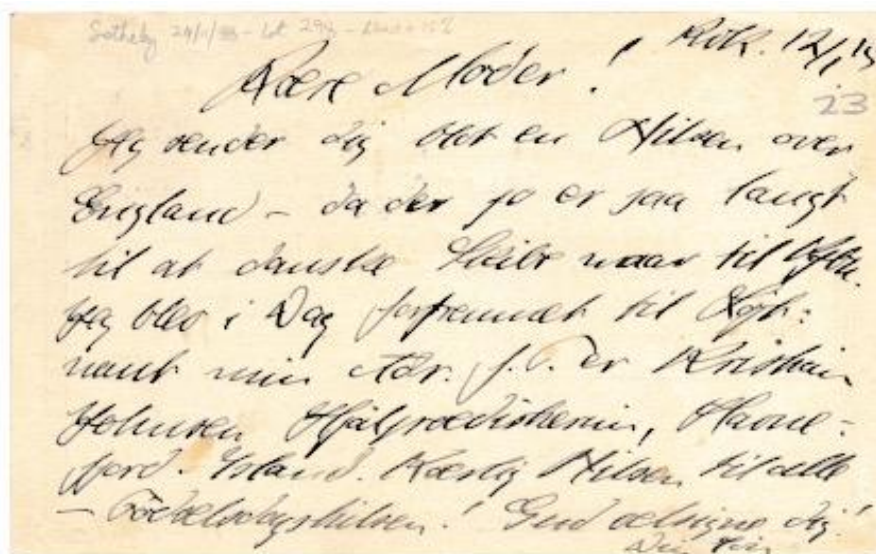 Sotheby 24/11/88 - Lot 299 -
Rvk. 12/1 19
Kære Moder!
23
Jeg sender dig blot en Hilsen over
England - da der jo er saa langt
til at danske Skibe naar til
Jeg blev i Dag forfremmet til Løjt:
nant min Adr. f. T. er Kristian
Johnsen Hjälprædisherrin, Havne-
fjord. Island. Kærlig Hilsen til alle
- Födselsdagshilsen! Gud velsigne dig!
Din